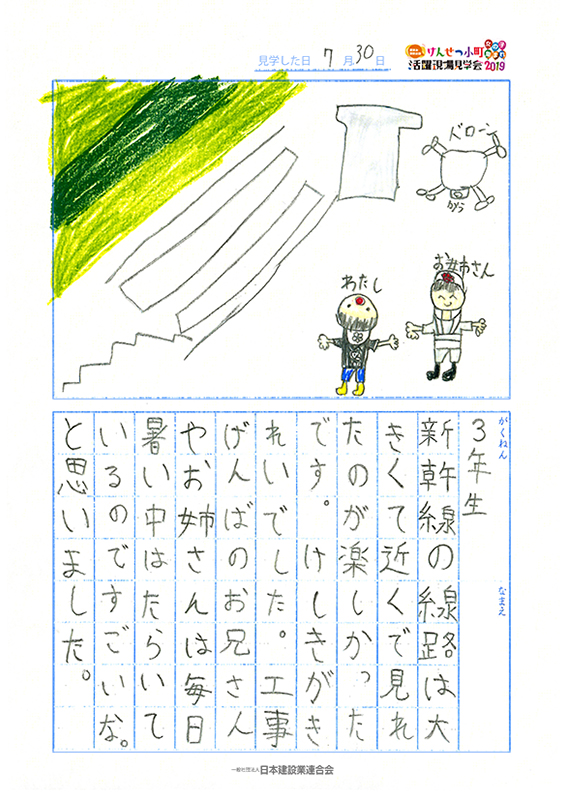 見学した日 7月30日
けんせつ小町
活躍現場見学会 2019
ドローン
カメラ
わたし
お姉さん
がくねん
3年生
なまえ
新幹線の線路は大
きくて近くで見れ
たのが楽しかった
です。けしきがき
れいでした。工事
げんばのお兄さん
やお姉さんは毎日
暑い中はたらいて
いるのですごいな。
と思いました。
一般社団法人 日本建設業連合会